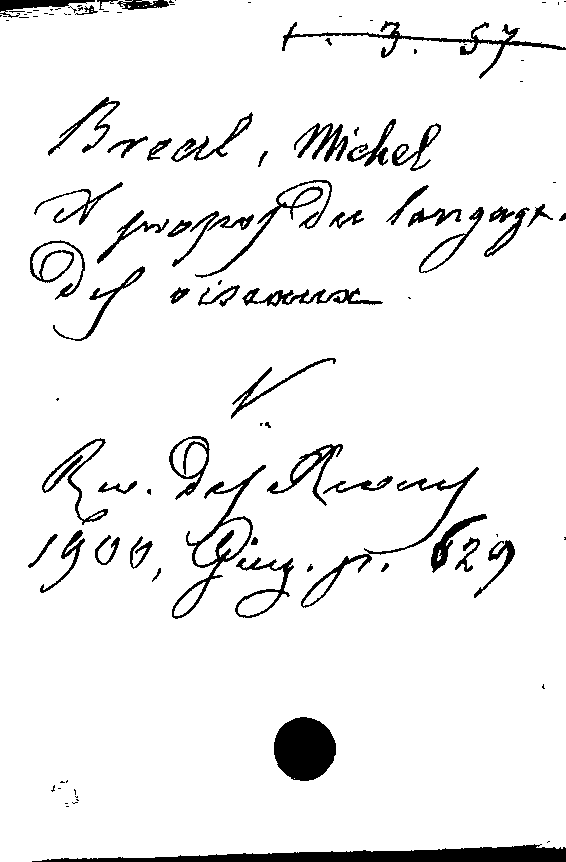 1. 3. 57
Breal, Michel
A propos du langage
des oiseaux
V
Rev. des Revues
1900, p. 629